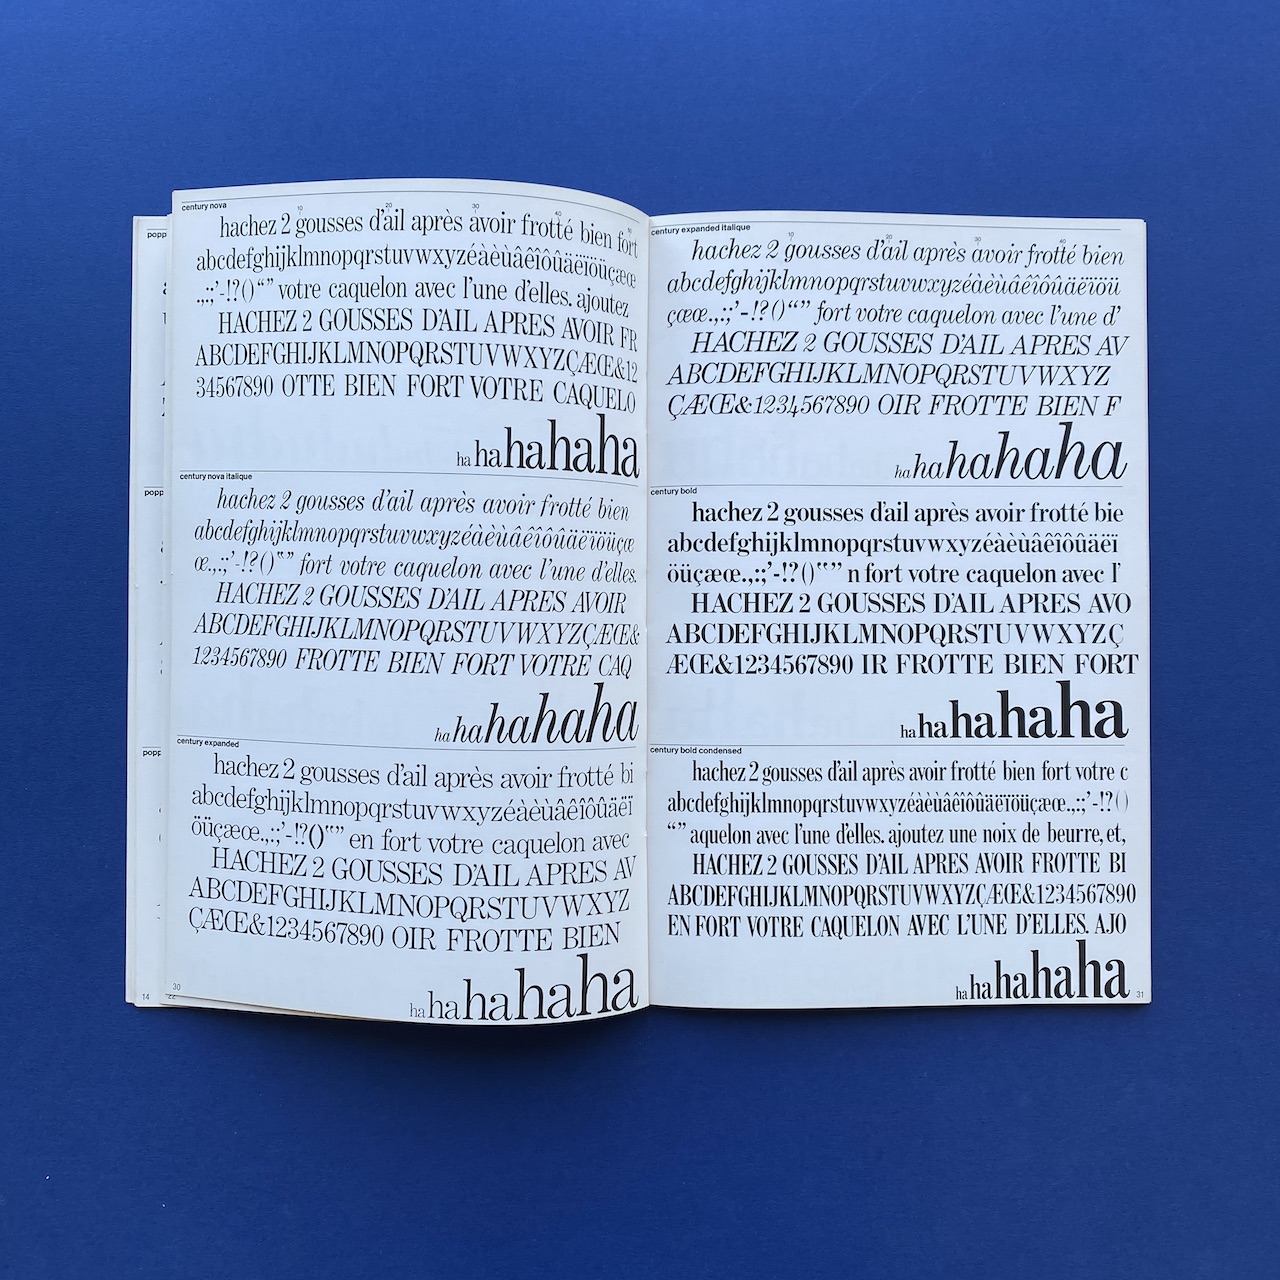 century nova
10 20 30 40 50
hachez 2 gousses d'ail après avoir frotté bien fort
abcdefghijklmnopqrstuvwxyzéàèùâêîôûäëïöüçæœ
.,:;'-!?()“” votre caquelon avec l'une d'elles. ajoutez
HACHEZ 2 GOUSSES D'AIL APRES AVOIR FR
ABCDEFGHIJKLMNOPQRSTUVWXYZÇÆŒ&12
34567890 OTTE BIEN FORT VOTRE CAQUELO
ha ha ha ha ha
century nova italique
hachez 2 gousses d'ail après avoir frotté bien
abcdefghijklmnopqrstuvwxyzéàèùâêîôûäëïöüçæ
œ.,:;'-!?()“” fort votre caquelon avec l'une d'elles.
HACHEZ 2 GOUSSES D'AIL APRES AVOIR
ABCDEFGHIJKLMNOPQRSTUVWXYZÇÆŒ&
1234567890 FROTTE BIEN FORT VOTRE CAQ
ha ha ha ha ha
century expanded
hachez 2 gousses d'ail après avoir frotté bi
abcdefghijklmnopqrstuvwxyzéàèùâêîôûäëï
öüçæœ.,:;'-!?()“” en fort votre caquelon avec
HACHEZ 2 GOUSSES D'AIL APRES AV
ABCDEFGHIJKLMNOPQRSTUVWXYZ
ÇÆŒ&1234567890 OIR FROTTE BIEN
ha ha ha ha ha
30
century expanded italique
10 20 30 40
hachez 2 gousses d'ail après avoir frotté bien
abcdefghijklmnopqrstuvwxyzéàèùâêîôûäëïöü
çæœ.,:;'-!?()“” fort votre caquelon avec l'une d'
HACHEZ 2 GOUSSES D'AIL APRES AV
ABCDEFGHIJKLMNOPQRSTUVWXYZ
ÇÆŒ&1234567890 OIR FROTTE BIEN F
ha ha ha ha ha
century bold
hachez 2 gousses d'ail après avoir frotté bie
abcdefghijklmnopqrstuvwxyzéàèùâêîôûäëï
öüçæœ.,:;'-!?()“” n fort votre caquelon avec l'
HACHEZ 2 GOUSSES D'AIL APRES AVO
ABCDEFGHIJKLMNOPQRSTUVWXYZÇ
ÆŒ&1234567890 IR FROTTE BIEN FORT
ha ha ha ha ha
century bold condensed
hachez 2 gousses d'ail après avoir frotté bien fort votre c
abcdefghijklmnopqrstuvwxyzéàèùâêîôûäëïöüçæœ.,:;'-!?()
“” aquelon avec l'une d'elles. ajoutez une noix de beurre, et,
HACHEZ 2 GOUSSES D'AIL APRES AVOIR FROTTE BI
ABCDEFGHIJKLMNOPQRSTUVWXYZÇÆŒ&1234567890
EN FORT VOTRE CAQUELON AVEC L'UNE D'ELLES. AJO
ha ha ha ha ha
31
popp
popp
popp
14
22